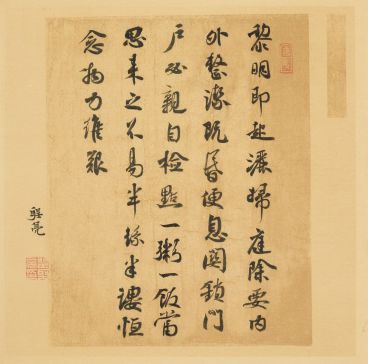 黎明即起灑掃庭除要內
外整潔既昏便息關鎖門
戶必親自檢點一粥一飯當
思來之不易半絲半縷恒
念物力維艱
亮